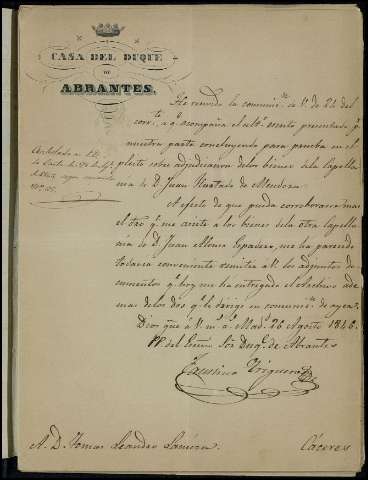 CASA DEL DUQUE
DE
ABRANTES.
He recivido la comunic.n de V. de 21 del
corr.te a q.e acompaña el ult.o escrito presentado p.r
nuestra parte concluyendo para prueba en el
pleito sobre adjudicacion de los bienes de la Capella
nia de D. Juan Hurtado de Mendoza.
A efecto de que pueda corroborar mas
el dro q.e me asiste a los bienes de la otra Capella
nia de D. Juan Alonso Espadero, me ha parecido
todavia conveniente remitir á V. los adjuntos do
cumentos q.e hoy me ha entregado el Archivo ade
mas de los dos q.e le dirigo en comunic.n de ayer.
Dios gue á V. m.s a.s Mad.d 26 Agosto 1846.
PP. del Excmo Sor Duq.e de Abrantes
Faustino Trigueros
A. D. Tomas Leandro Cáceres